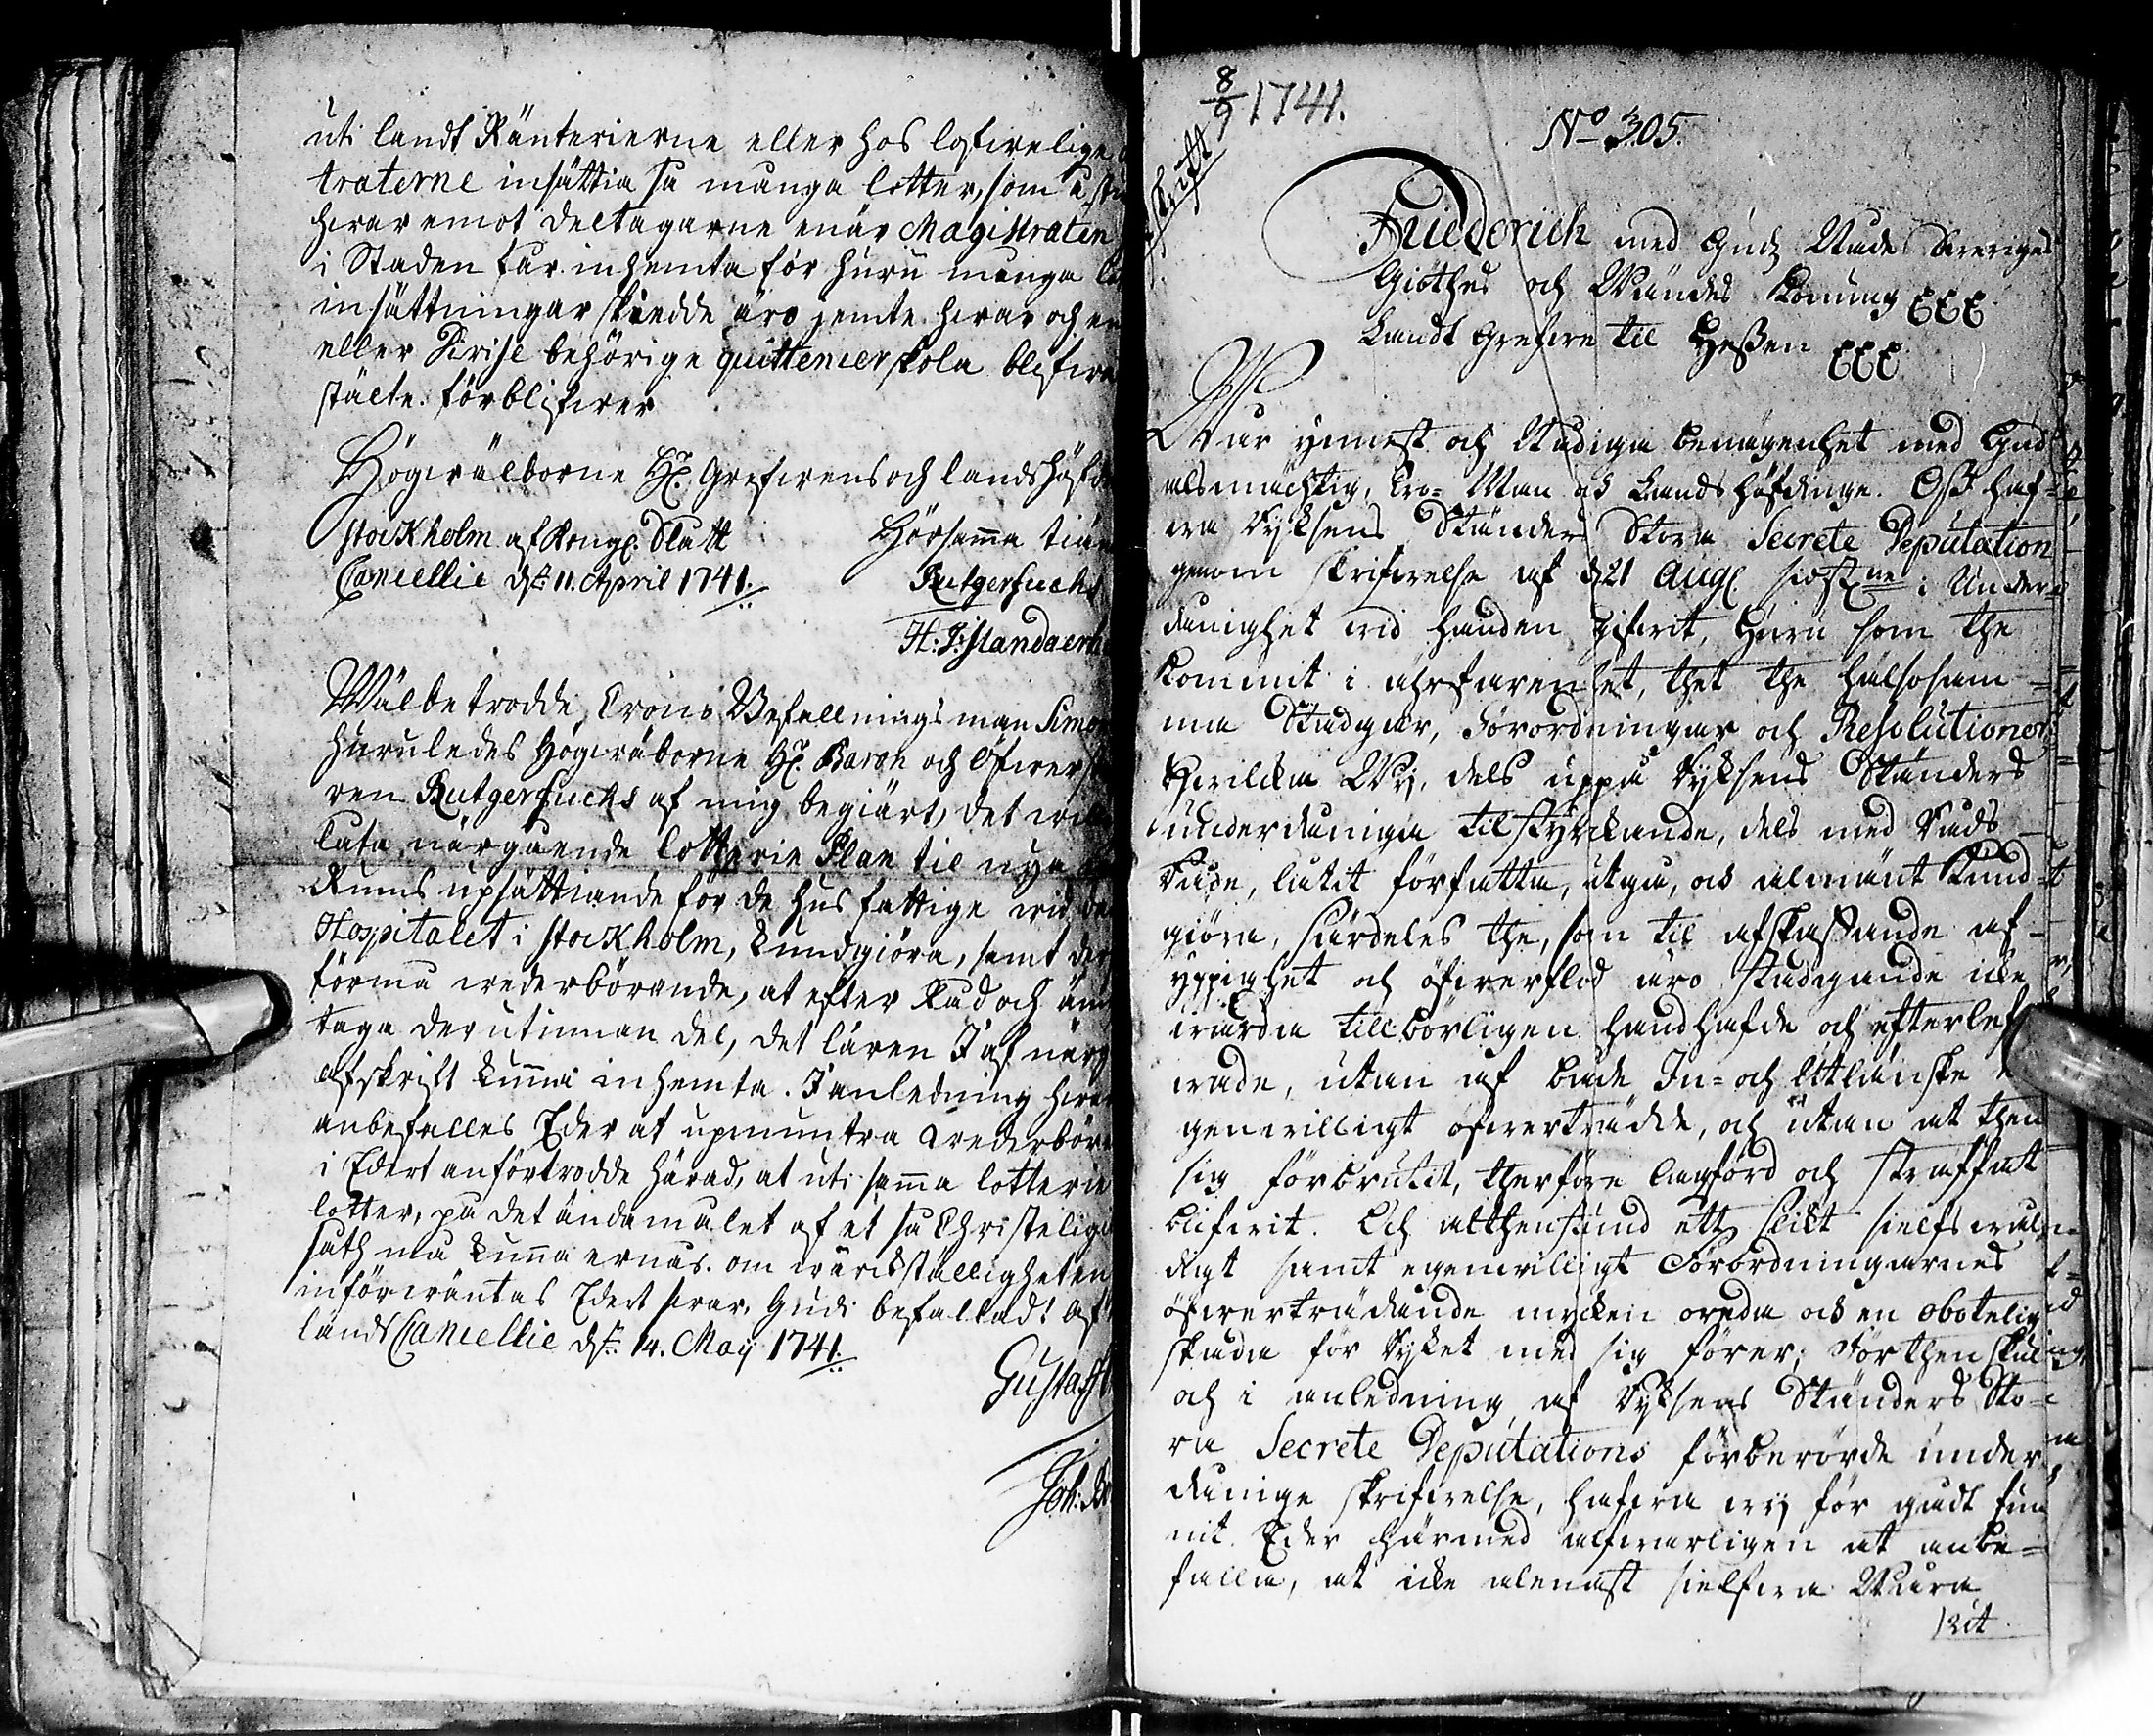 uti landt Ränterierne eller hos lofwelige
traterne insättia så många lotter, som
hwaremot deltagarne enär Magistraten
i Staden får inhemta för huru många
insättningar skiedde äro jemte hwar och en
eller Prise behörige quittencier skola blifwa
stälte. förblifwer
Högwälborne Hr. Grefwens och landshöfd
Stockholm af Kongl. Slatt Hörsamma tiän
Cancellie d. 11. April 1741. Rutgerfuchs
H. J: Standaert
Wälbetrodde Crono Befallningsman Simo
Huruledes Högwälborne Hr. Baron och Öfwerst
ren Rutgerfuchs af mig begiärt, det wil
låta närgående lotterie Plan til nya
Rums upsättiande för de husfattige wid
Hospitalet i Stockholm, Kundgiöra, samt der
förma wederbörande, at efter Råd och äm
taga derutinnan del, det lären I af närg
afskrift Kunna inhemta. I anledning hwar
anbefalles Eder at upmuntra wederbör
i Edert anförtrodde härad, at uti samma lotterie
lotter, på det ändamålet af et så Christelig
sath må Kunna ernås. om wärckställigheten
införwäntas Edert swar. Gudi befallad! Af
lands Cancellie d. 14. Maij 1741.
Gustaff
Joh:
8/9 1741.
afskrift
No 305.
Friederich med Gudz Nåde Sweriges
Giöthes och Wändes Konung &&&
Landt Grefwe til Hessen &&&
Wår ynnest och Nådiga benägenhet med Gud
alsmächtig, Tro- Man och Landshöfdinge. Oss haf-
wa Ryksens Ständers Stora Secrete Deputation
genom skrifwelse af d. 21 Aug. sidstne i Under-
dånighet wid handen gifwit, Huru som the
Kommit i ährfarenhet, thet the hälsosam-
ma Stadgar, Förordningar och Resolutioner
hwilcka Wij, dels uppå Ryksens Ständers
underdåniga tilstyrckande, dels med Råds
Råde, låtit författa, utgå, och almänt Kund-
giöra, särdeles the, som til afskaffande af
yppighet och öfwerflöd äro stadgande icke
wärda tillbörligen handhafde och efterlef-
wade, utan af både In- och Utländske
genwilligt öfwerträdde, och utan at then
sig förbrutit, therföre lagförd och straffat
blifwit. Och altthenstund ett slikt sielfswål-
digt samt egenwilligt Förordningarnes
öfwerträdande mycken oreda och en obotelig
skada för Ryket med sig förer; Förthenskul
och i anledning af Ryksens Ständers Sto-
ra Secrete Deputations förberörde under
dånige skrifwelse, hafwa wij för godt fun
nit Eder härmed alfwarligen at anbe-
falla, at icke alenast sielfwa Wåra